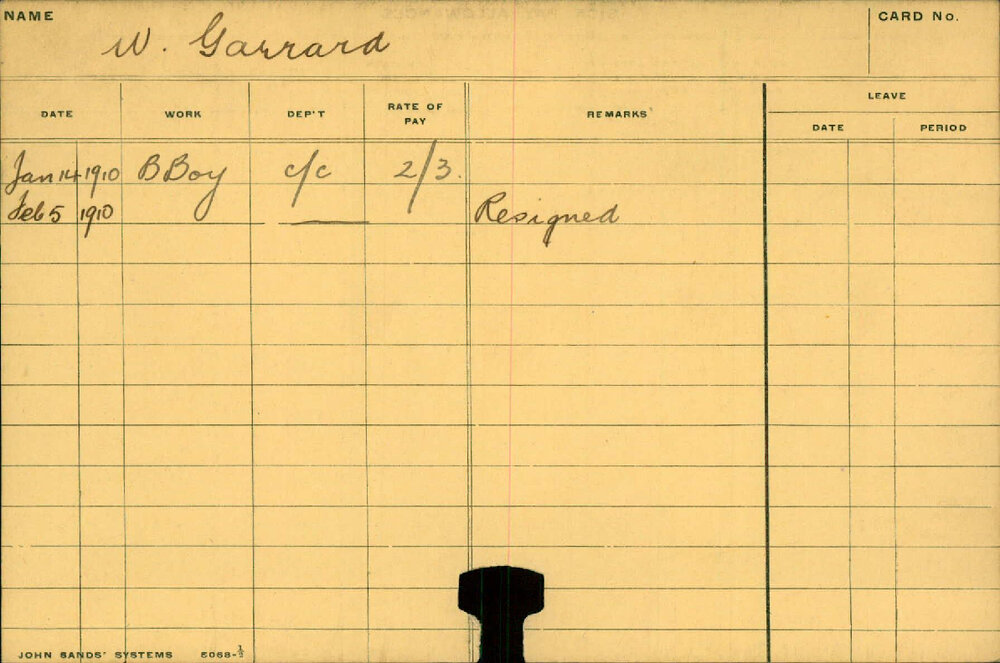 NAME W. Garrard CARD No.
LEAVE
DATE WORK DEP'T RATE OF PAY REMARKS DATE PERIOD
Jan 14 1910 B Boy c/c 2/3.
Feb 5 1910 — Resigned
JOHN SANDS' SYSTEMS 5068-½